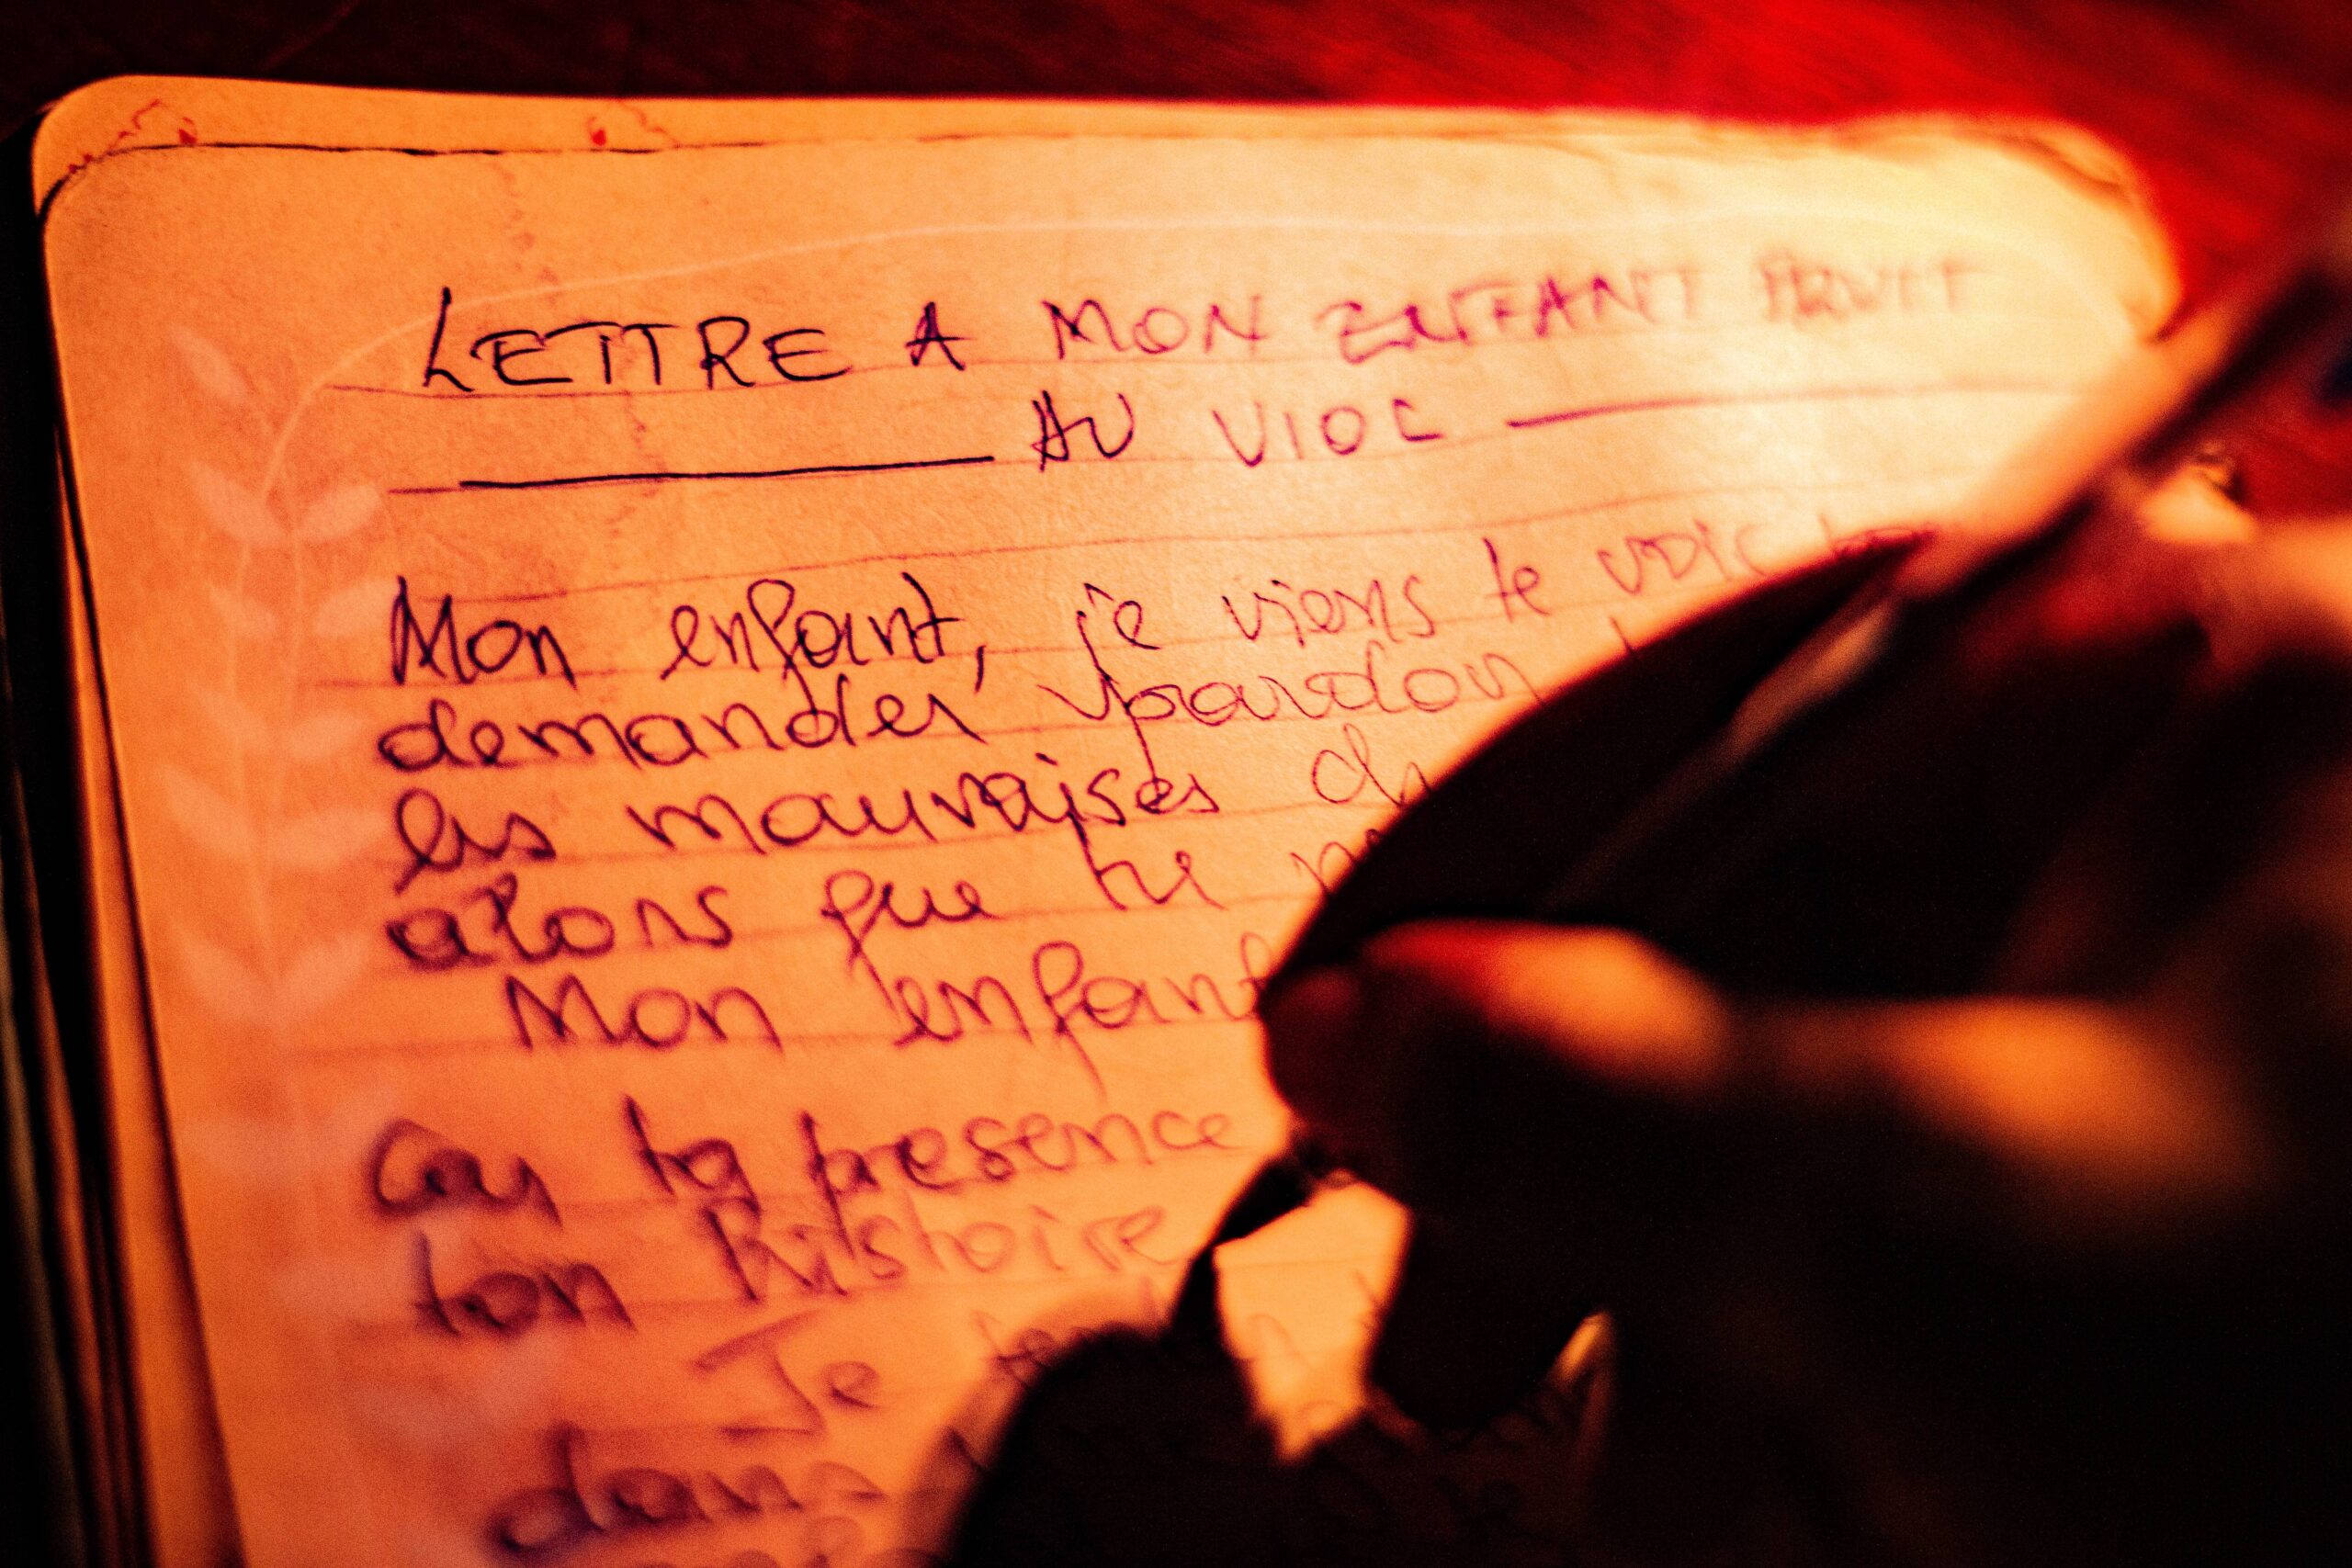 LETTRE A MON ENFANT FRUIT
AU VIOL
Mon enfant, je viens te voir
demander pardon
les mauvaises
alors que tu
Mon enfant
Car ta presence
ton histoire
Je
dans